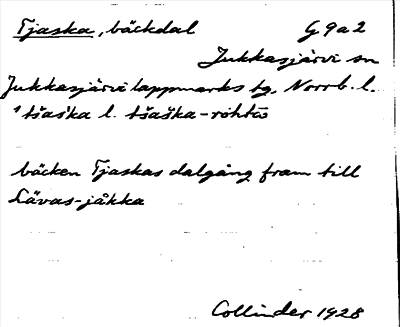 Tjaska, bäckdal G 9 a 2
Jukkasjärvi sn
Jukkasjärvi lappmarks tg, Norrb. l.
tšaška l. tšaška-rōhtō
bäcken Tjaskas dalgång fram till
Lävas-jåkka
Collinder 1928